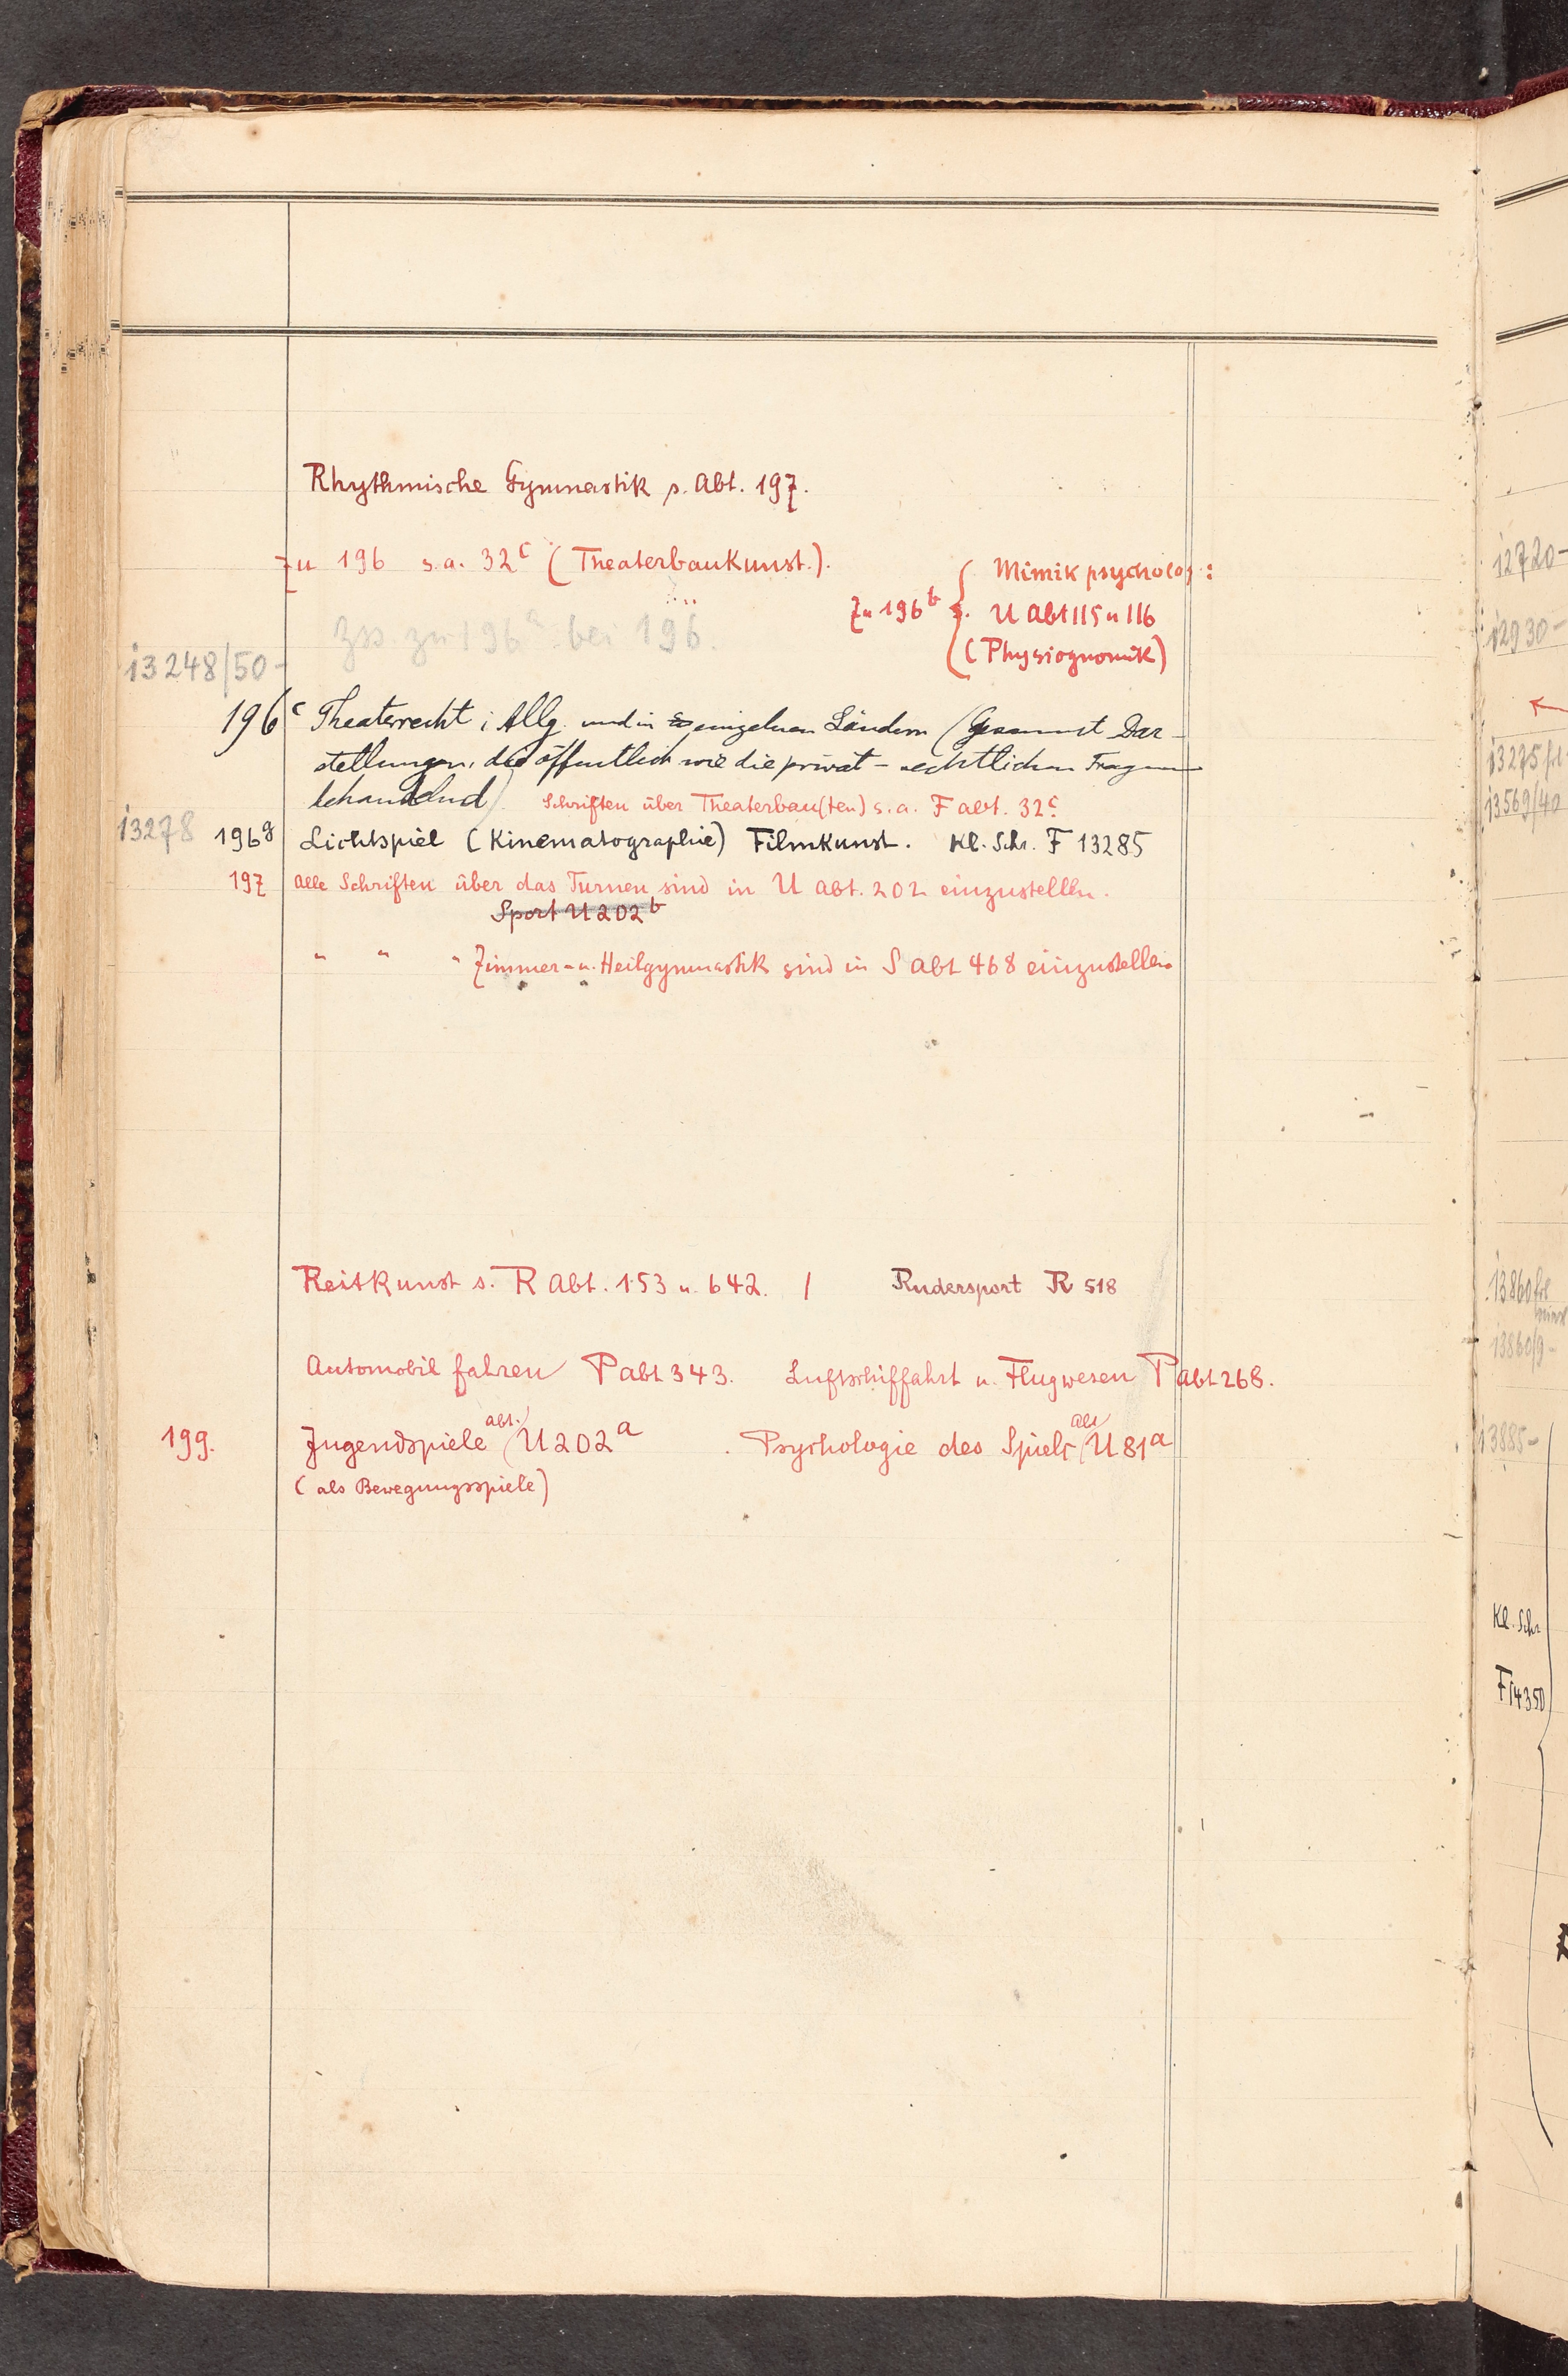 Rhythmische Gymnastik s. Abt. 197.
Zu 196 s.a. 32c (Theaterbaukunst.).
Mimik psycholog:
Zu 196b s. U Abt 115 u 116
(Physiognomik)
Zss. zu 196a bei 196.
13248/50-
196c Theaterrecht i Allg. und in einzelnen Ländern (Gesammt Dar-
stellungen, die öffentlich wie die privat-rechtlichen Fragen
behandelnd). Schriften über Theaterbau(ten) s.a. F abt. 32c
13278 196g Lichtspiel (Kinematographie) Filmkunst. Kl. Schr. F 13285
197 Alle Schriften über das Turnen sind in U abt. 202 einzustellen.
Sport U 202b
" " " Zimmer- u. Heilgymnastik sind in S abt 468 einzustellen
Reitkunst s. R Abt. 153 u. 642. / Rudersport R 518
Automobil fahren P abt 343. Luftschiffahrt u. Flugwesen P abt 268.
199. Jugendspiele abt. U 202a . Psychologie des Spiels abt U 81a
(als Bewegungsspiele)
12720-
12930-
13275
13569/40
13860
13860/9-
13885-
Kl. Schr
F14350